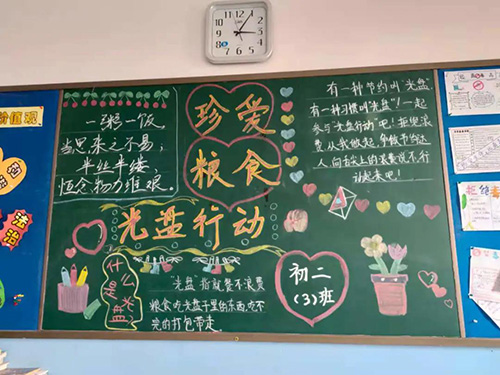 价值观
法治
一粥一饭
当思来之不易;
半丝半缕
恒念物力维艰。
珍爱
粮食
光盘行动
有一种节约叫“光盘”
有一种习惯叫“光盘”!一起
参与“光盘行动”吧!拒绝浪
费,从我做起,
人,向舌尖上的浪费说不,行
动起来吧!
什么
是光
盘?
“光盘”指就餐不浪费
粮食,吃光盘子里的东西,吃不
完的打包带走。
初二
(3)班
拒绝